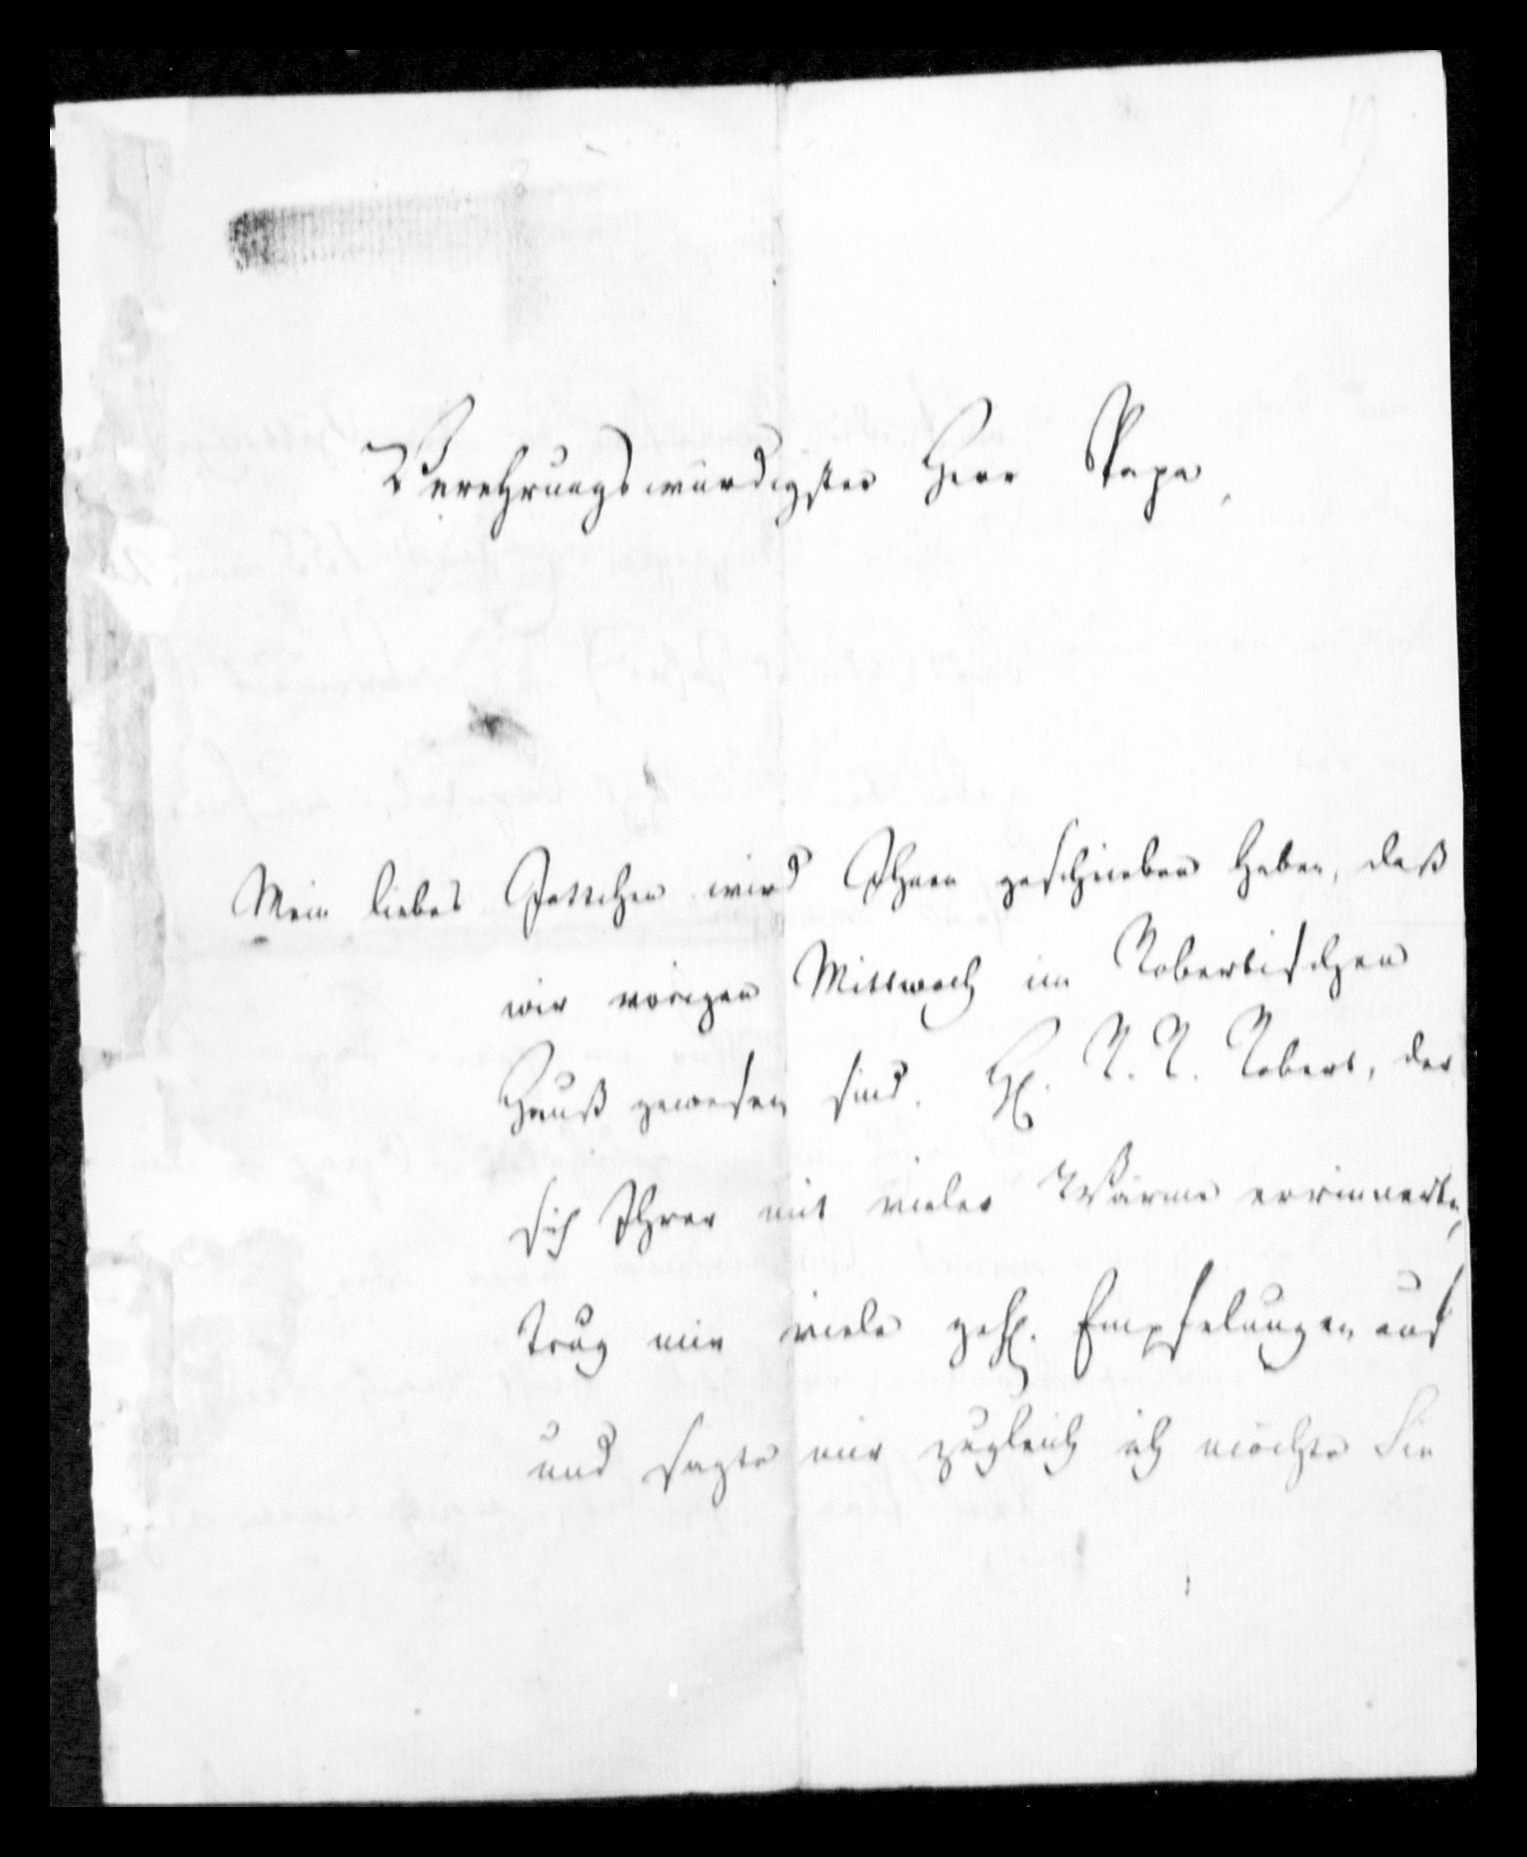 Verehrungswürdigster Herr Papa,
Mein liebes Jettchen wird Ihnen geschrieben haben, daß
wir vorigen Mittwoch im Robertischen
Hauß gewesen sind. H. R. R. Robert, der
sich Ihrer mit vieler Wärme errinnerte,
trug mir viele geh. Empfelungen auf
und sagte mir zugleich ich möchte Sie